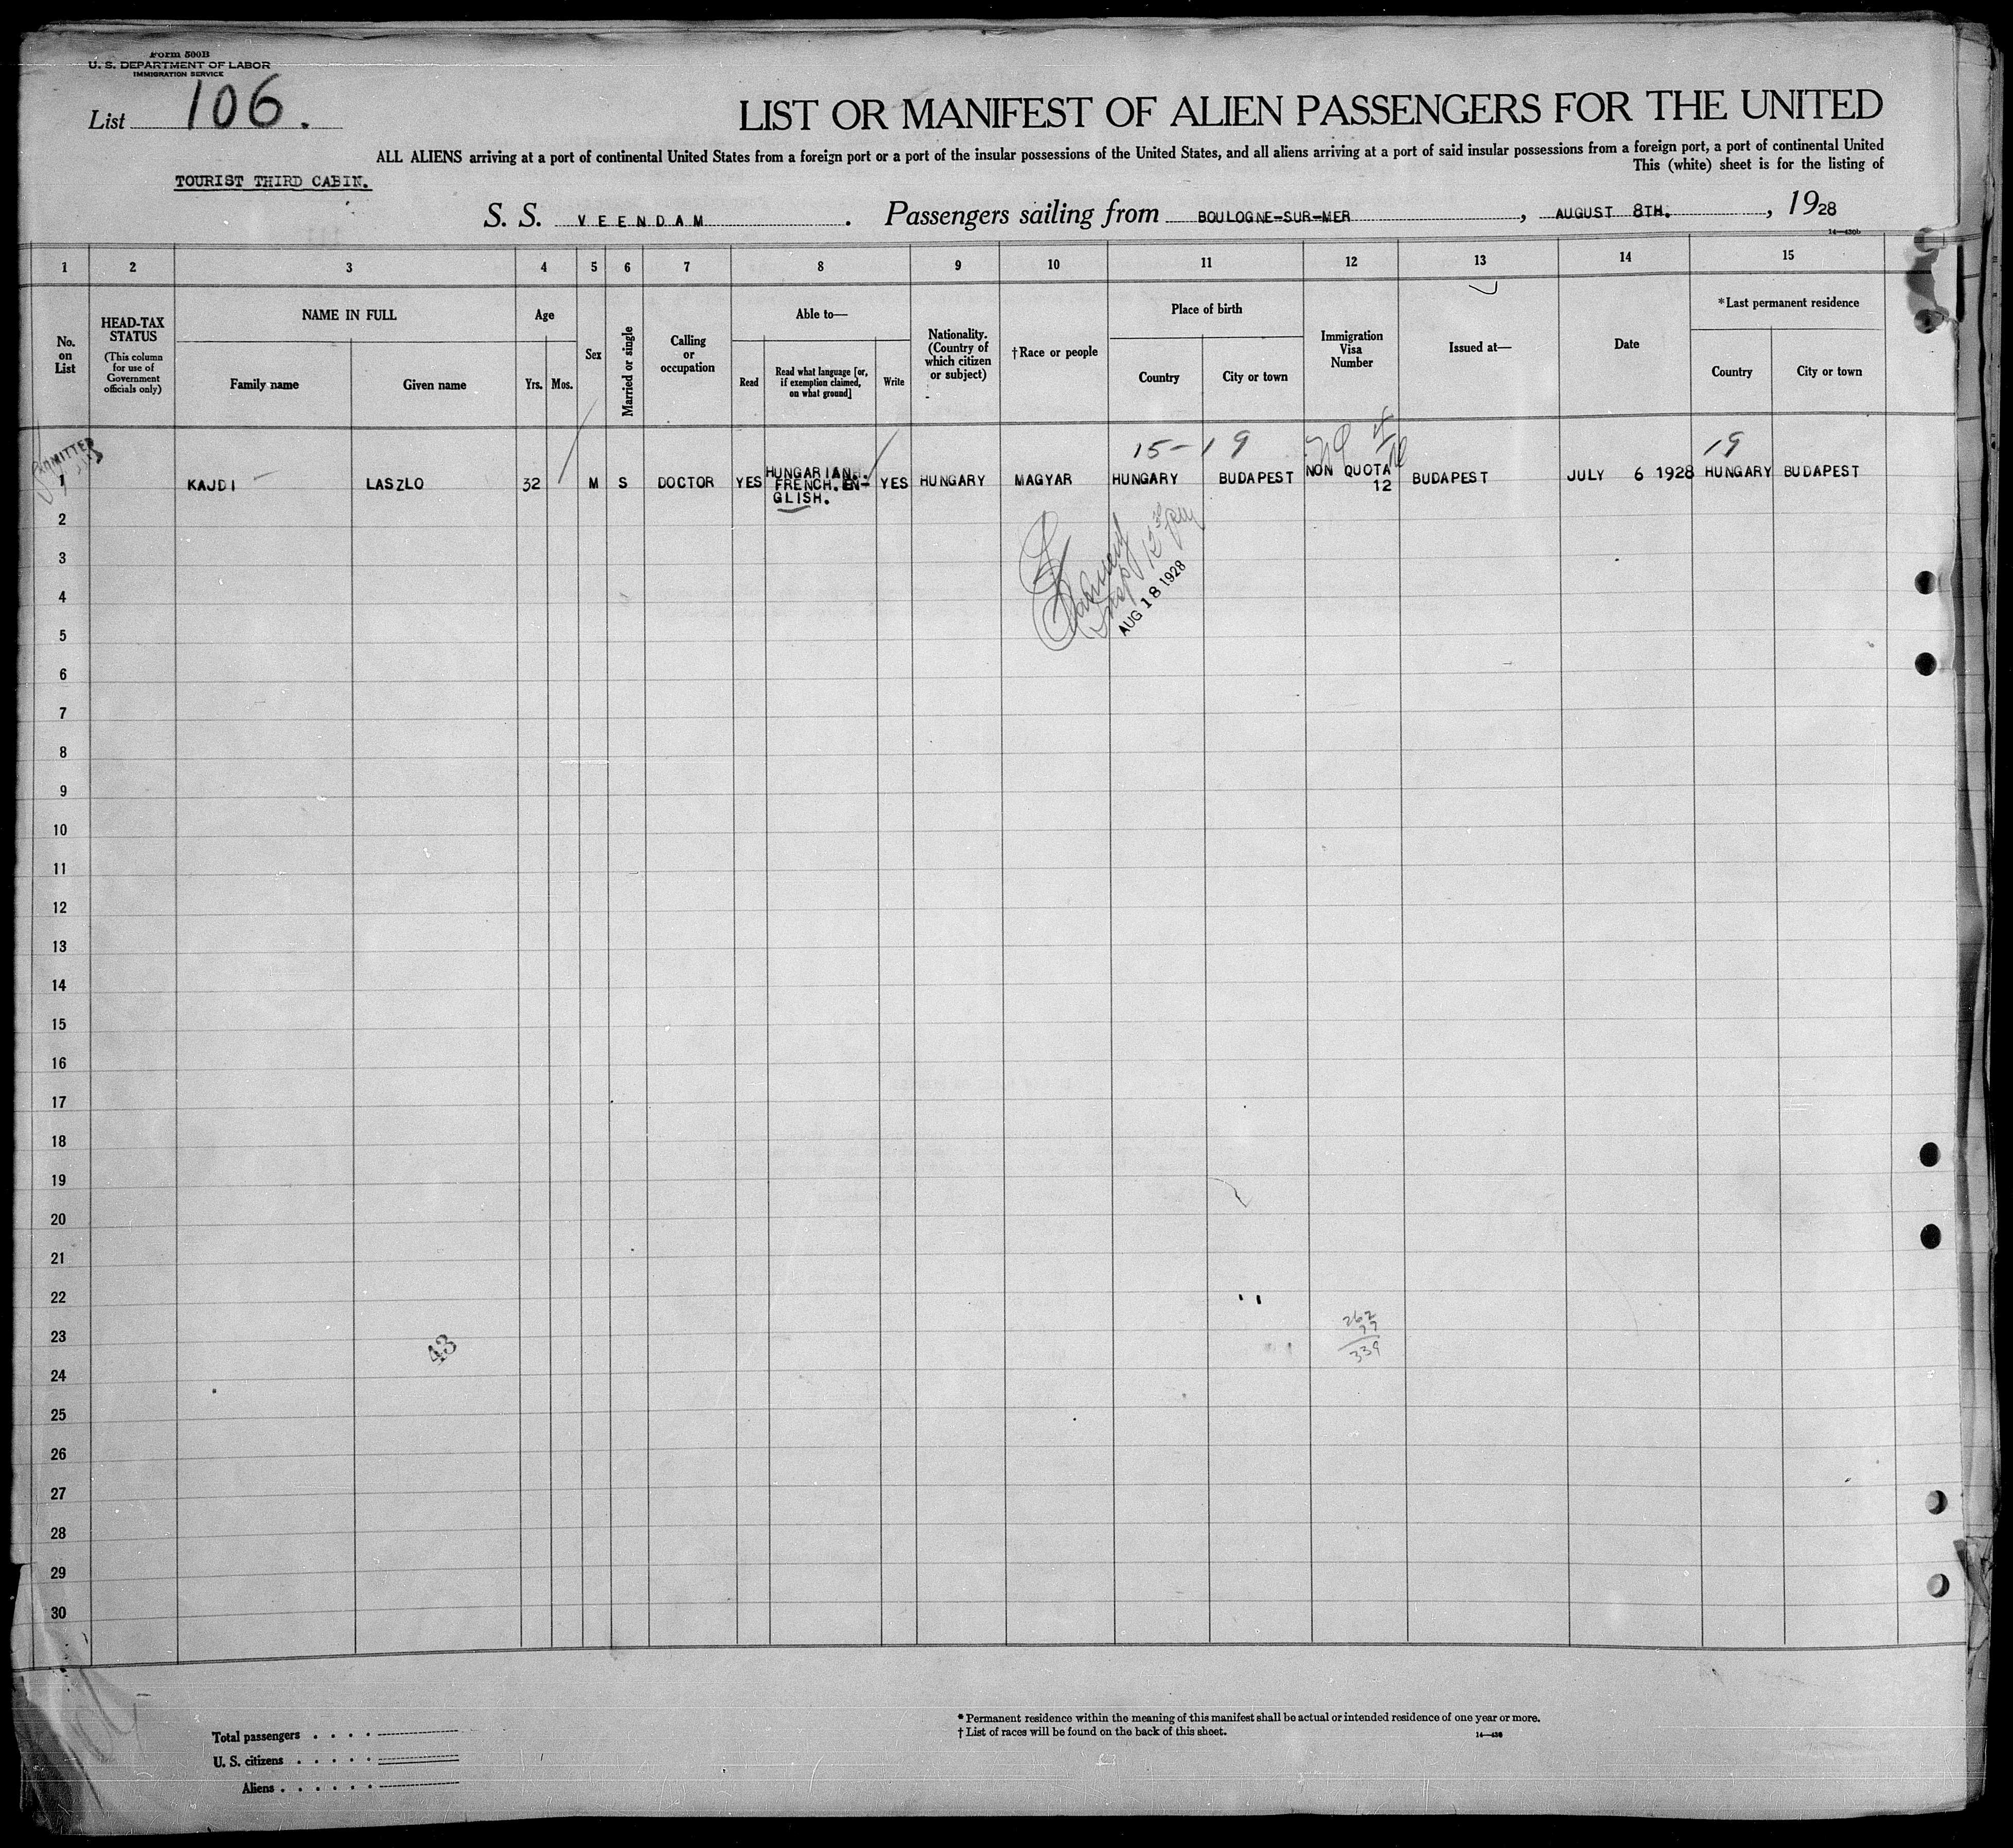 Form 500B
U. S. DEPARTMENT OF LABOR
IMMIGRATION SERVICE
List 106.
LIST OR MANIFEST OF ALIEN PASSENGERS FOR THE UNITED
ALL ALIENS arriving at a port of continental United States from a foreign port or a port of the insular possessions of the United States, and all aliens arriving at a port of said insular possessions from a foreign port, a port of continental United
This (white) sheet is for the listing of
TOURIST THIRD CABIN.
S. S. VEENDAM. Passengers sailing from BOULOGNE-SUR-MER, AUGUST 8TH., 1928
14—430b
1 2 3 4 5 6 7 8 9 10 11 12 13 14 15
No. on List
HEAD-TAX STATUS
(This column for use of Government officials only)
NAME IN FULL
Family name
Given name
Age
Yrs. Mos.
Sex
Married or single
Calling or occupation
Able to—
Read
Read what language [or, if exemption claimed, on what ground]
Write
Nationality. (Country of which citizen or subject)
†Race or people
Place of birth
Country
City or town
Immigration Visa Number
Issued at—
Date
*Last permanent residence
Country
City or town
ADMITTED
15-19
19
1 KAJDI LASZLO 32 M S DOCTOR YES HUNGARIAN. FRENCH. EN- GLISH. YES HUNGARY MAGYAR HUNGARY BUDAPEST NON QUOTA 12 BUDAPEST JULY 6 1928 HUNGARY BUDAPEST
2
3
AUG 18 1928
4
5
6
7
8
9
10
11
12
13
14
15
16
17
18
19
20
21
22
23
262
77
339
43
24
25
26
27
28
29
30
Total passengers . . . .
U. S. citizens . . . . .
Aliens . . . . . .
* Permanent residence within the meaning of this manifest shall be actual or intended residence of one year or more.
† List of races will be found on the back of this sheet.
14—430